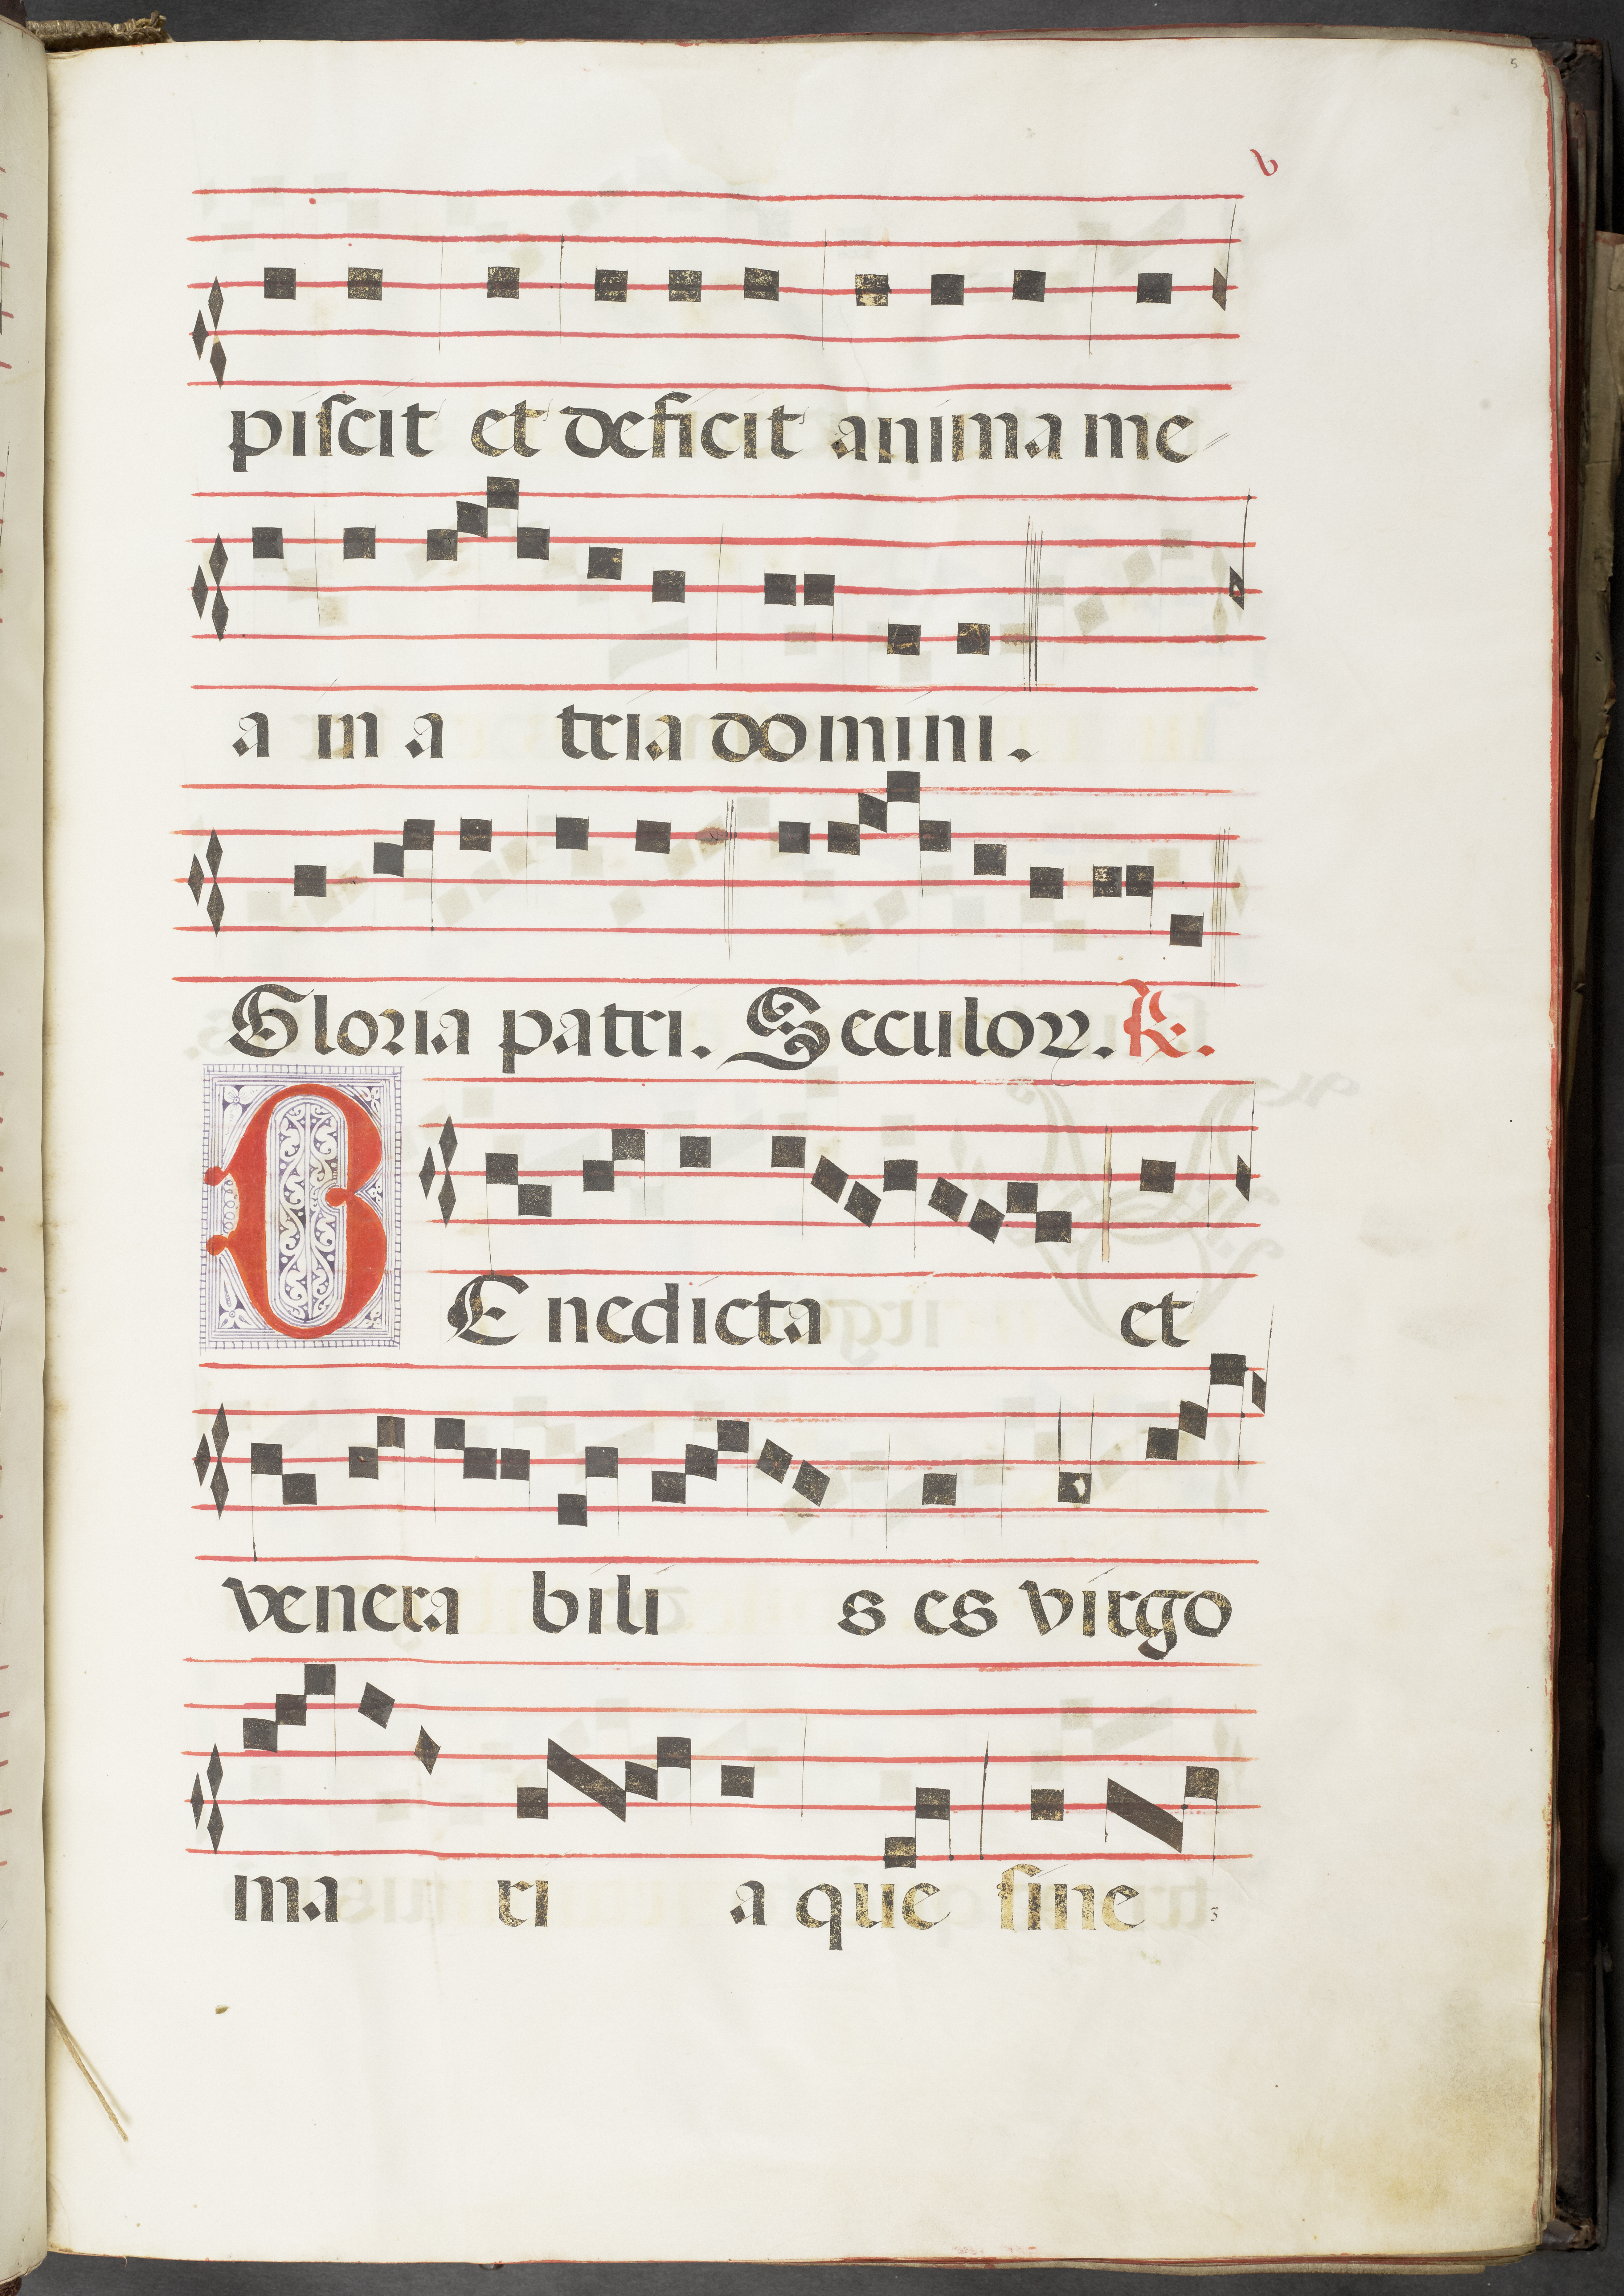 5
v
piscit et deficit anima me
a in a tria domini.
Gloria patri. Seculoꝝ. ℟.
BEnedicta et
venera bili s es virgo
ma ri a que sine
3